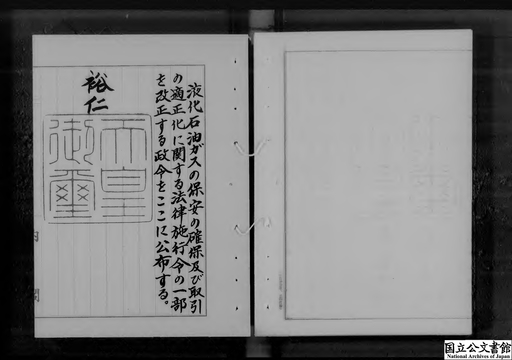 液化石油ガスの保安の確保及び取引
の適正化に関する法律施行令の一部
を改正する政令をここに公布する。
裕仁
天皇
御璽
内閣
国立公文書館
National Archives of Japan